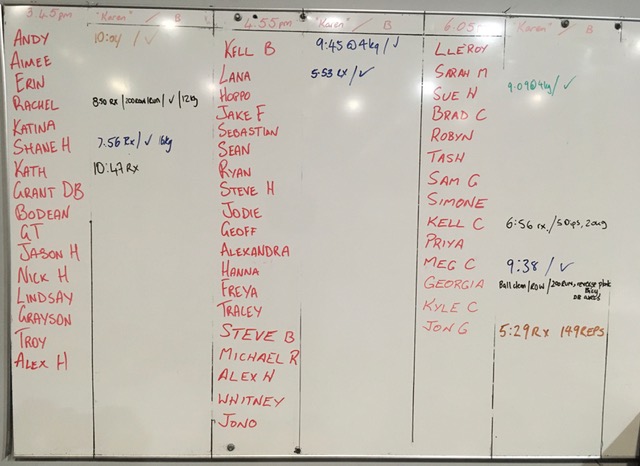 3.45pm "Karen" / B
ANDY 10:04 / ✓
AIMEE
ERIN
RACHEL 8:50 RX / 200m RUN / ✓ / 12kg
KATINA
SHANE H 7.56 Rx / ✓ 16kg
KATH 10:47 RX
GRANT DB
BODEAN
GT
JASON H
NICK H
LINDSAY
GRAYSON
TROY
ALEX H
4.55pm "Karen" / B
KELL B 9:45 @ 4kg / ✓
LANA 5:53 RX / ✓
HOPPO
JAKE F
SEBASTIAN
SEAN
RYAN
STEVE H
JODIE
GEOFF
ALEXANDRA
HANNA
FREYA
TRALEY
STEVE B
MICHAEL R
ALEX W
WHITNEY
JONO
6.05 "Karen" / B
LLEROY
SARAH M
SUE H 9:09 @ 4kg / ✓
BRAD C
ROBYN
TASH
SAM G
SIMONE
KELL C 6:56 rx. /
PRIYA
MEG C 9:38 / ✓
GEORGIA Ball clean / ROW / 200 RUN, reverse plank
KYLE C
JON G 5:29 RX 149 REPS